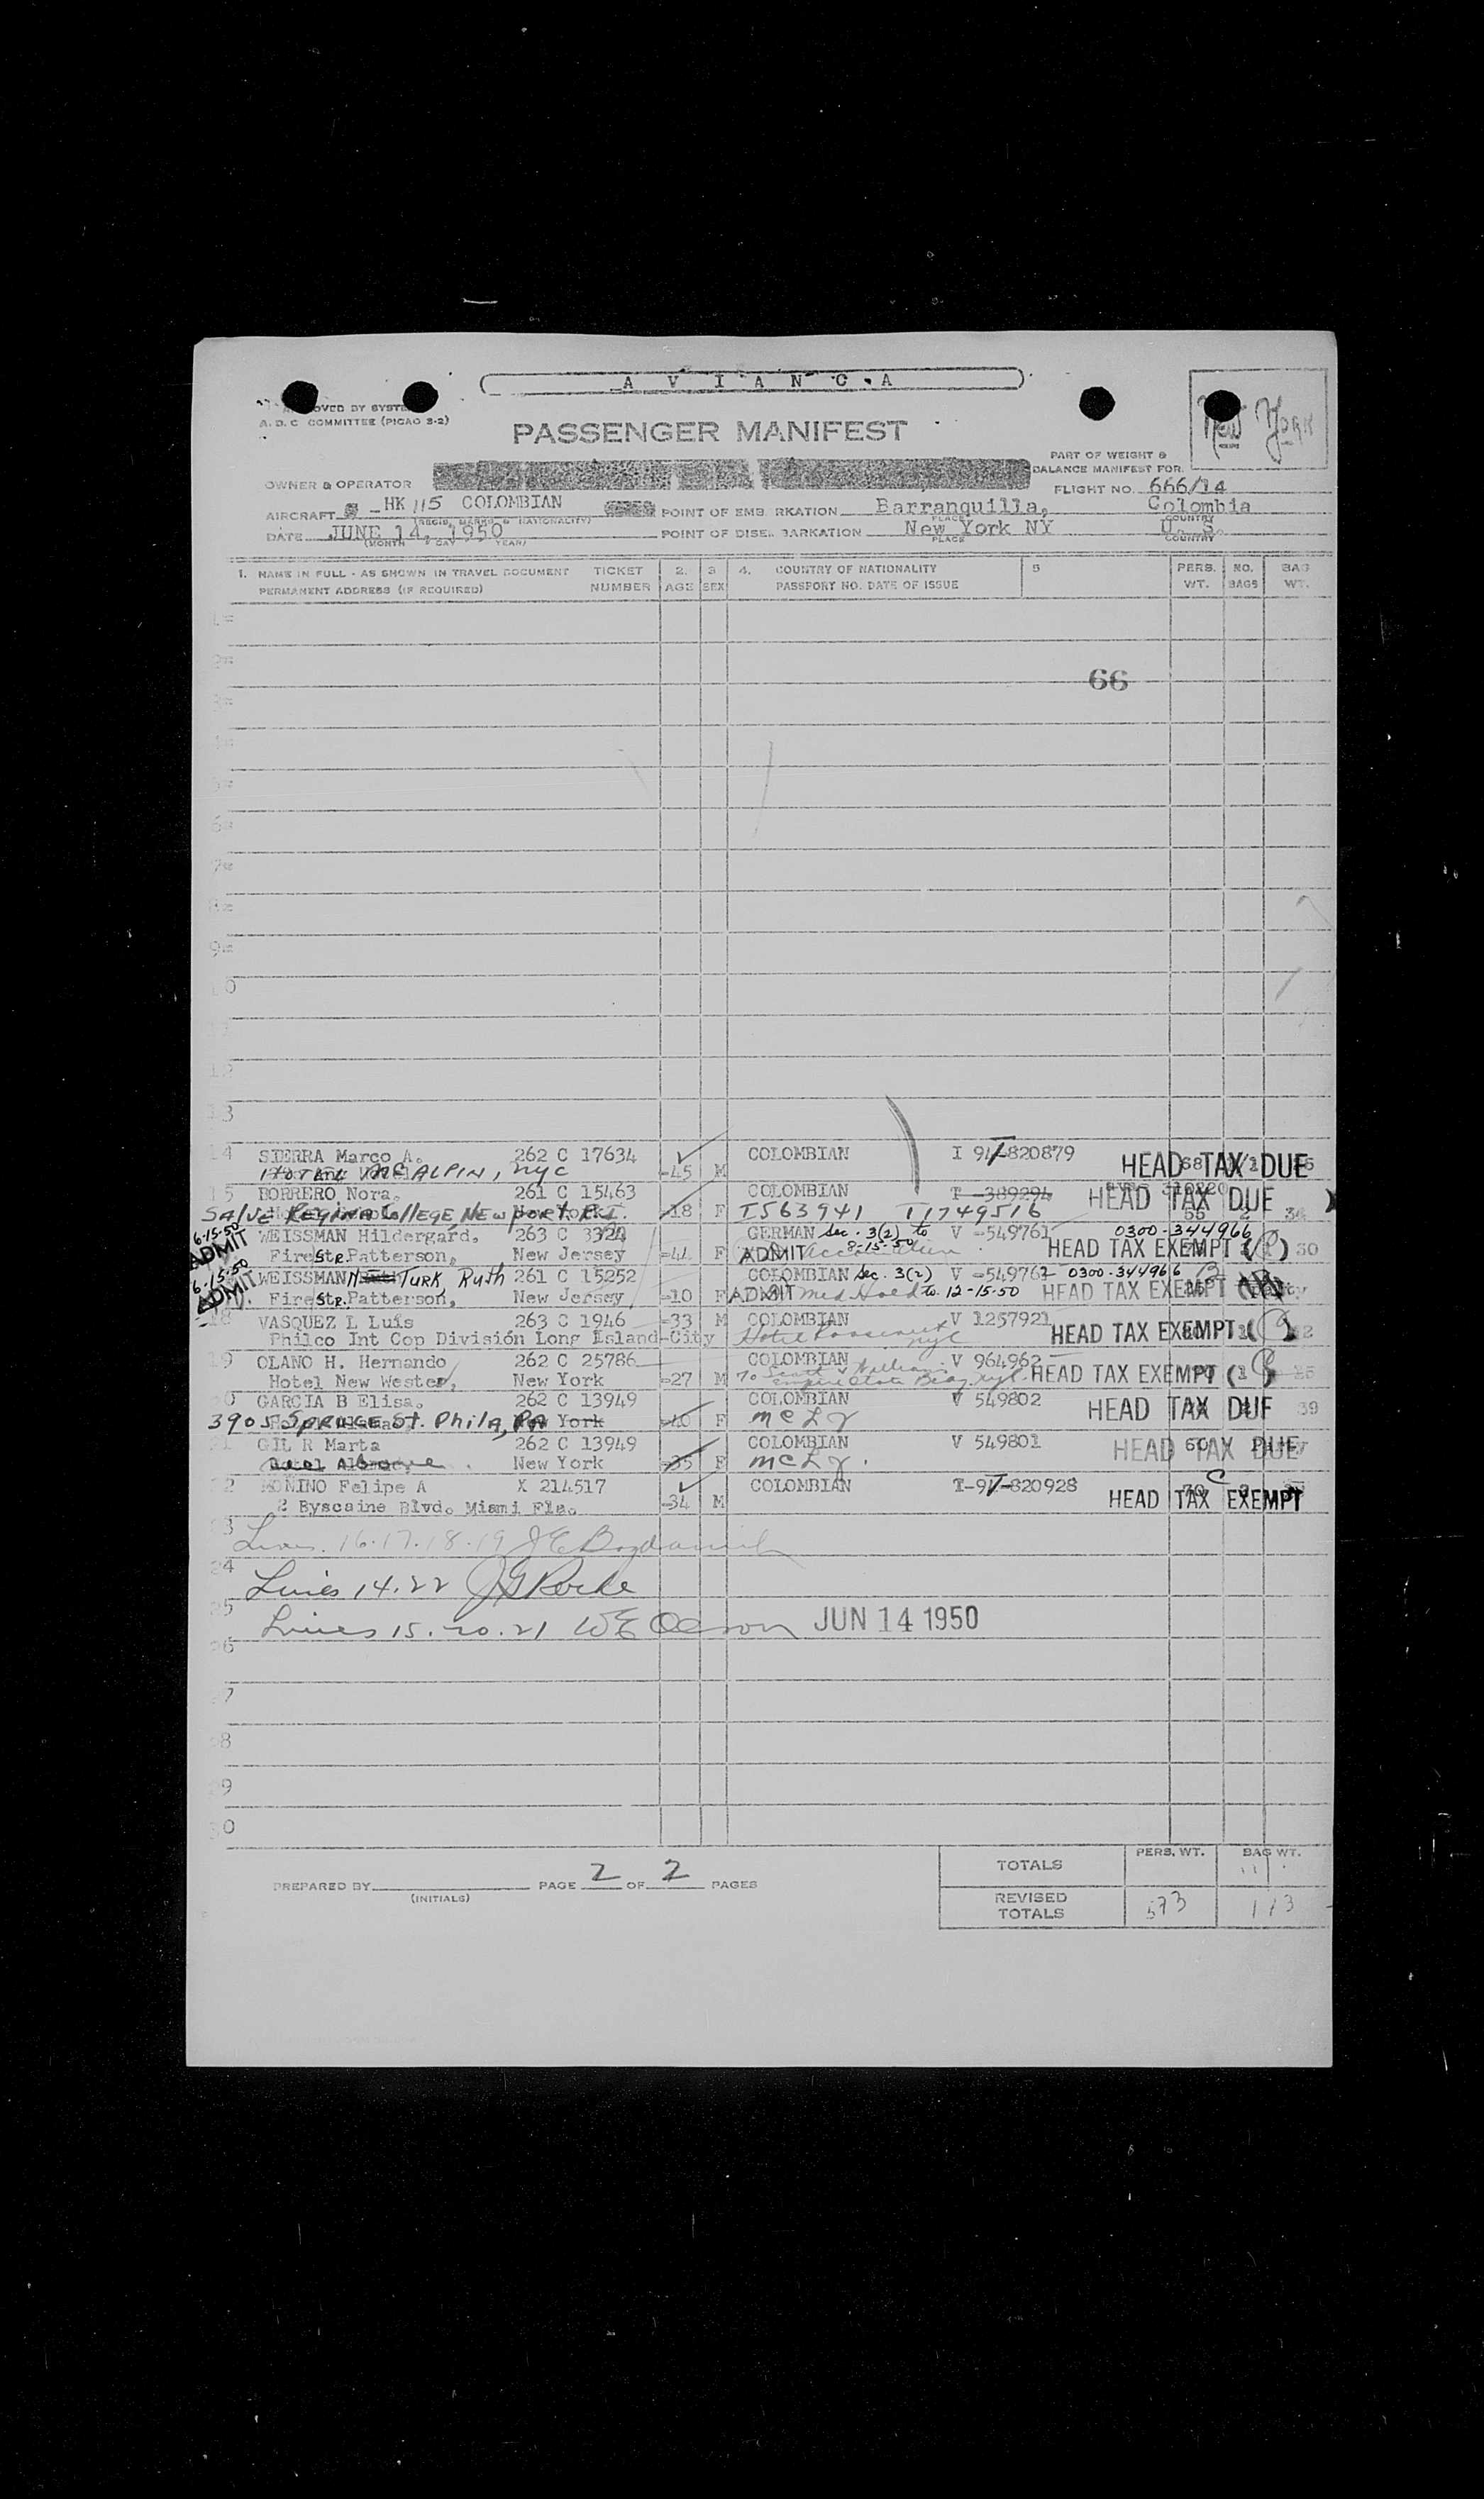 A V I A N C A
New York
A. D. C COMMITTEE (PICAO 2-2)
PASSENGER MANIFEST
PART OF WEIGHT &
BALANCE MANIFEST FOR.
OWNER & OPERATOR
FLIGHT NO. 666/14
AIRCRAFT HK 115 COLOMBIAN POINT OF EMB RKATION Barranquilla, Colombia
(REGIS. MARKS & NATIONALITY) PLACE COUNTRY
DATE JUNE 14, 1950 POINT OF DISE ARKATION New York NY U. S.
(MONTH DAY YEAR) PLACE COUNTRY
1. NAME IN FULL - AS SHOWN IN TRAVEL DOCUMENT TICKET 2. 3 4. COUNTRY OF NATIONALITY 5 PERS. NO. BAG
PERMANENT ADDRESS (IF REQUIRED) NUMBER AGE SEX PASSPORT NO. DATE OF ISSUE WT. BAGS WT.
66
14 SIERRA Marco A. 262 C 17634 COLOMBIAN I 820879
HOTEL McALPIN, NYC 45 M HEAD TAX DUE
15 BORRERO Nora. 261 C 15463 COLOMBIAN T -389294
Salve Regina College, Newport R.I. 18 F T563941 T1749516 HEAD TAX DUE 34
6-15-50 WEISSMAN Hildergard. 263 C 3324 GERMAN Sec. 3(2) to V -549761 0300-344966
ADMIT Fire Str. Patterson, New Jersey F ADMIT 8-15-50 HEAD TAX EXEMPT 30
6-15-50 WEISSMAN TURK, Ruth 261 C 15252 COLOMBIAN Sec. 3(2) V -549762 0300-344966
ADMIT Fire Str. Patterson, New Jersey -10 F ADMIT to 12-15-50 HEAD TAX EXEMPT
18 VASQUEZ L Luis 263 C 1946 -33 M COLOMBIAN V 1257921
Philco Int Cop División Long Island City Hotel Roosevelt NYC HEAD TAX EXEMPT
19 OLANO H. Hernando 262 C 25786 COLOMBIAN V 964962
Hotel New Weston, New York -27 M Empire State Bldg. NYC HEAD TAX EXEMPT
20 GARCIA B Elisa. 262 C 13949 COLOMBIAN V 549802
3905 Spruce St. Phila, PA York -40 F HEAD TAX DUE 39
21 GIL R Marta 262 C 13949 COLOMBIAN V 549801
above New York -35 F HEAD TAX DUE
22 Felipe A X 214517 COLOMBIAN 820928
2 Byscaine Blvd. Miami Fla. -34 M HEAD TAX EXEMPT
23
Lines 16.17.18.19
24
Lines 14.22
25
Lines 15.20.21 JUN 14 1950
26
PREPARED BY PAGE 2 OF 2 PAGES
(INITIALS)
TOTALS PERS. WT. BAG WT.
REVISED TOTALS 573 113